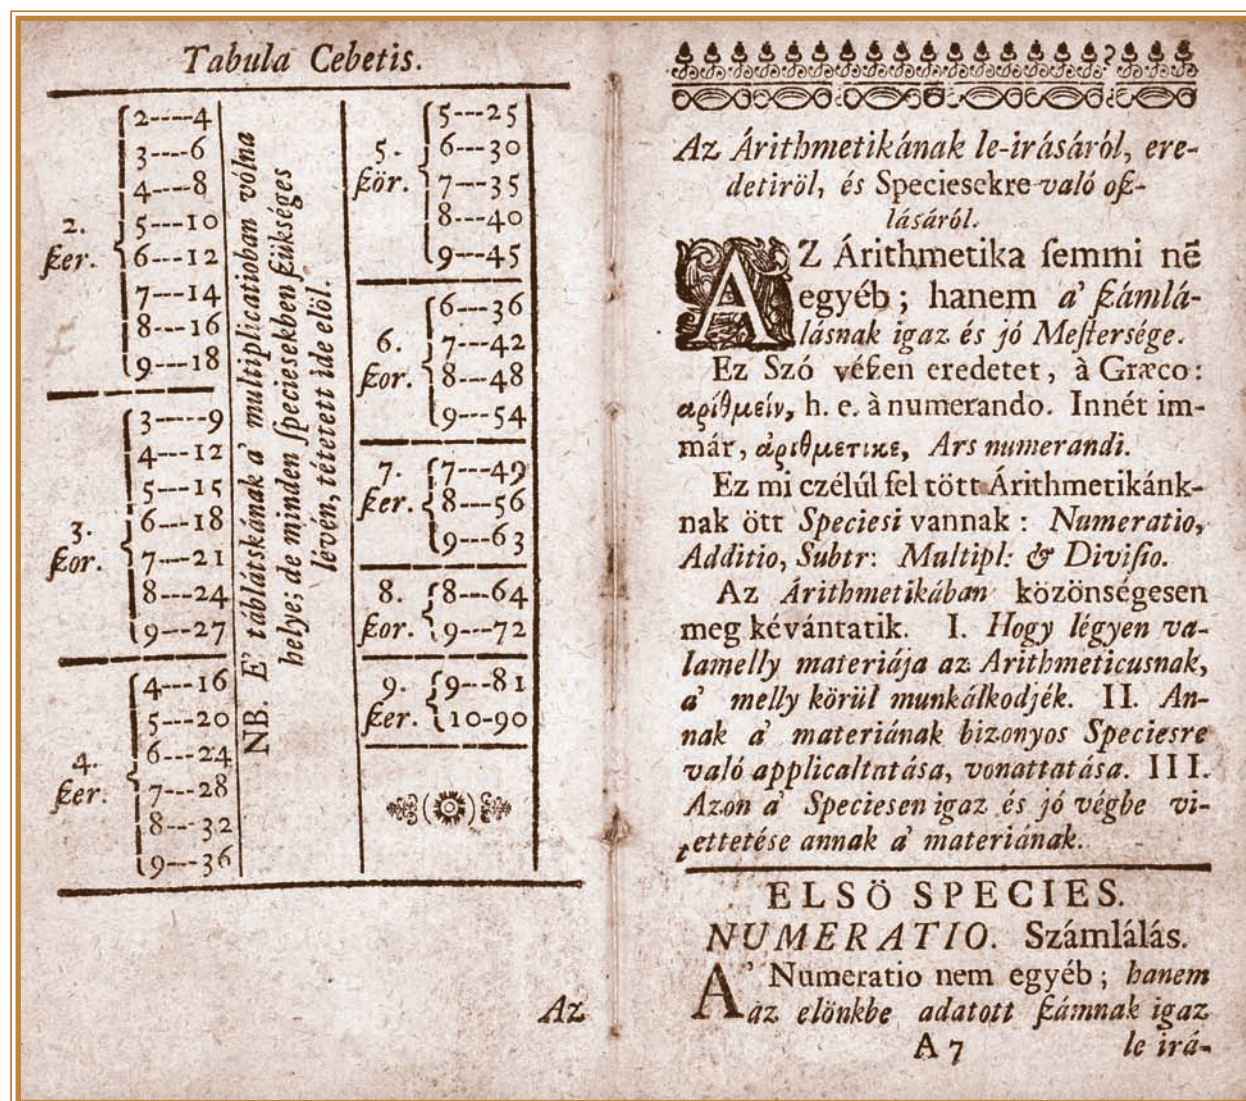 Tabula Cebetis.
2.
ſzer.
2----4
3---6
4----8
5---10
6---12
7---14
8---16
9---18
3.
ſzor.
3----9
4---12
5---15
6---18
7---21
8---24
9---27
4.
ſzer.
4---16
5---20
6---24
7---28
8---32
9---36
NB. E' táblátskának a' multiplicatioban vólna
helye; de minden ſpeciesekben ſzükséges
lévén, tétetett ide elöl.
5.
ſzör.
5---25
6---30
7---35
8---40
9---45
6.
ſzor.
6---36
7---42
8---48
9---54
7.
ſzer.
7---49
8---56
9---63
8.
ſzor.
8---64
9---72
9.
ſzer.
9---81
10-90
Az
Az Árithmetikának le-irásáról, ere-
detiröl, és Speciesekre való oſz-
lásáról.
AZ Árithmetika ſemmi nē
egyéb; hanem a' ſzámlá-
lásnak igaz és jó Meſtersége.
Ez Szó véſzen eredetet, à Græco:
αρίθμείν, h. e. à numerando. Innét im-
már, ἀριθμετικε, Ars numerandi.
Ez mi czélúl fel tött Árithmetikánk-
nak ött Speciesi vannak: Numeratio,
Additio, Subtr: Multipl: & Diviſio.
Az Árithmetikában közönségesen
meg kévántatik. I. Hogy légyen va-
lamelly materiája az Arithmeticusnak,
a' melly körül munkálkodjék. II. An-
nak a' materiának bizonyos Speciesre
való applicaltatása, vonattatása. III.
Azon a' Speciesen igaz és jó végbe vi-
tettetése annak a' materiának.
ELSÖ SPECIES.
NUMERATIO. Számlálás.
A' Numeratio nem egyéb; hanem
az elönkbe adatott ſzámnak igaz
A 7 le irá-